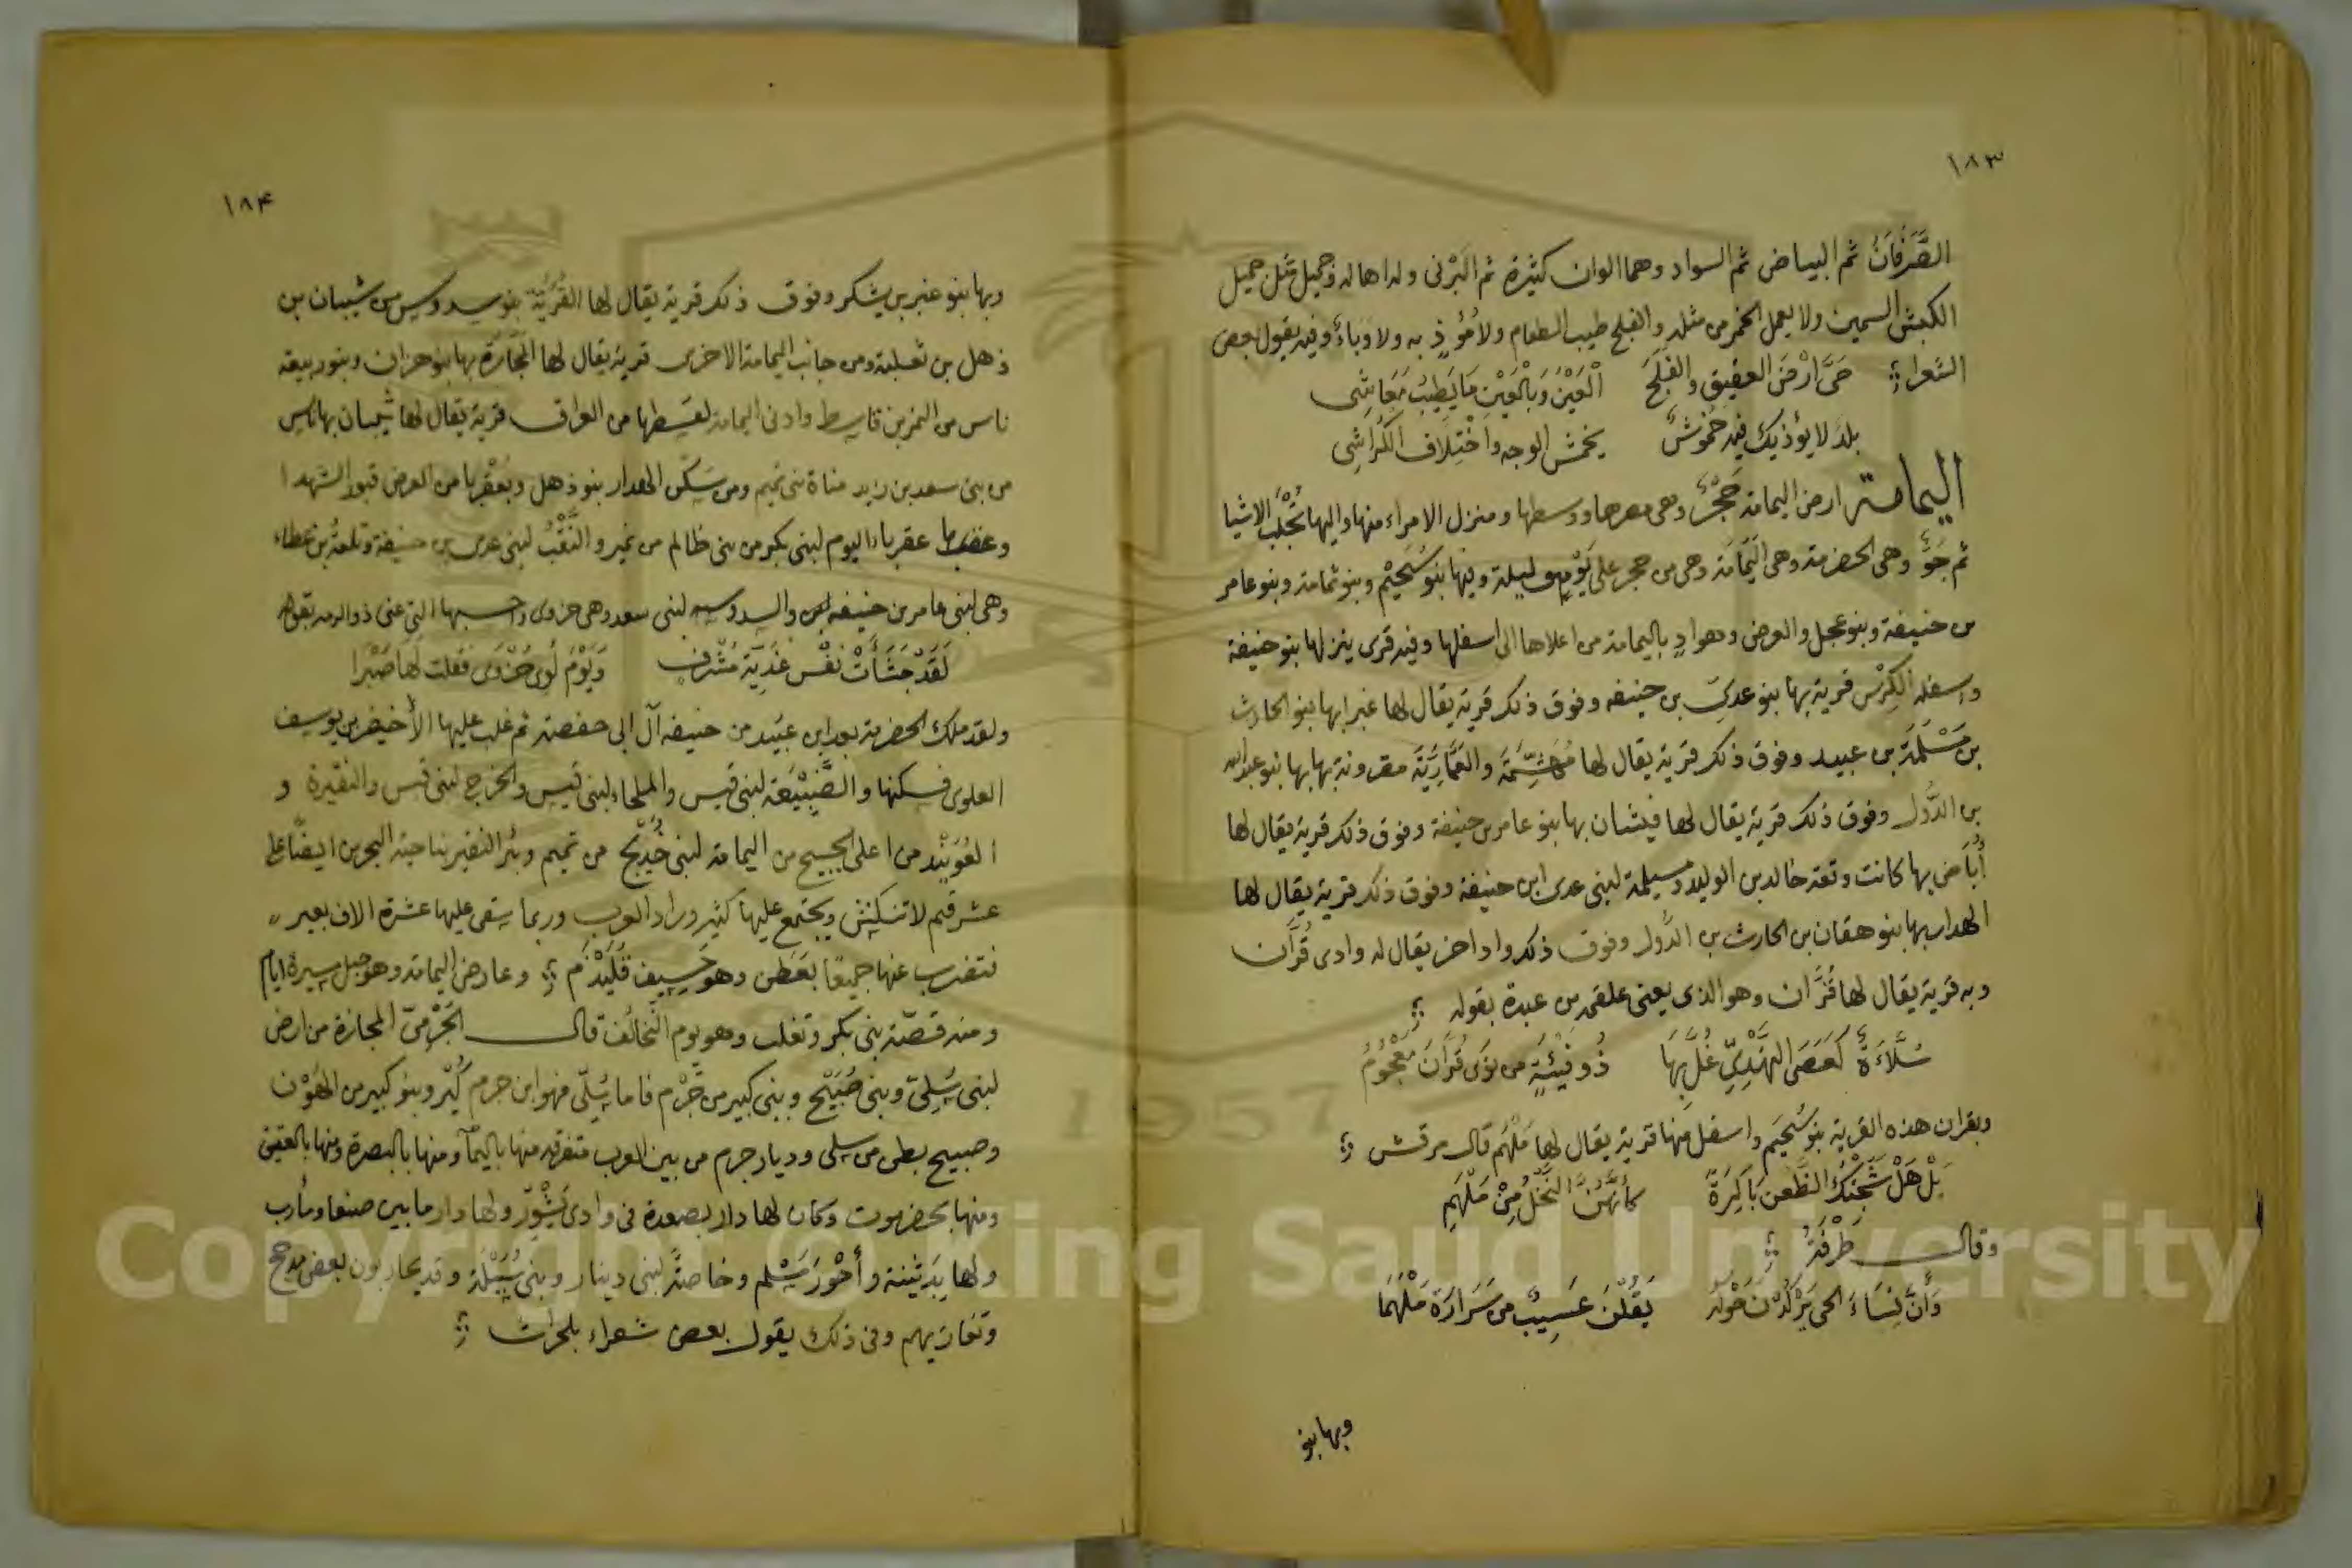 ١٨٣
الصَّرَفَانُ ثم البياض ثم السواد وهما الوان كثيرة ثم البَرْنى ولدا هاله وجميل مثل جميل
الكبش السمين ولا يعمل الخمر من مثله والفلج طيب الطعام ولا مُؤذٍ به ولا وباءٌ وفيه يقول بعض
الشعراء حَىَّ ارْضَ العقيق والفَلَجَ الْعَيْنَ وَبالْعَيْنِ مَا يَطِيبُ مَعَاشِى
بلدَ لا يؤذيك فيه خُمُوشٌ يخمش الوجه واخْتِلَاف الكَرَاشِى
اليمامة ارض اليمامة حَجْرٌ وهى مصرها ووسطها ومنزل الامراء منها واليها تُجْلَبُ الاشيا
ثم جَوٌّ وهى الخضرمة وهى اليَمَامَة وهى من حجر على يَوْمٍ وليلة وفيها بنو سُحَيْم وبنو ثمامة وبنو عامر
من حنيفة وبنو عجل والعرض وهو وادٍ باليمامة من اعلاها الى اسفلها وفيه قرى ينزلها بنو حنيفة
واسفله الكِرْسُ قرية بها بنو عدىّ بن حنيفه وفوق ذلك قرية يقال لها غبرا بها بنو الحارث
بن مَسْلَمَةَ بن عبيد وفوق ذلك قرية يقال لها مُهَشِّمَة والعَمَّارِيَّة مقرونة بها بها بنو عبد الله
بن الدُّول وفوق ذلك قرية يقال لها فيشان بها بنو عامر بن حنيفة وفوق ذلك قرية يقال لها
أُبَاض بها كانت وقعة خالد بن الوليد ومسيلمة لبنى عدى ابن حنيفة وفوق ذلك قرية يقال لها
الهدار بها بنو هفان بن الحارث بن الدُّول وفوق ذلك واد اخر يقال له وادى قُرَّان
وبه قرية يقال لها قُرَّان وهو الذى يعنى علقمه بن عبدة بقوله
سُلَّاءَةٌ كَعَصَى النَّهْدِىِّ غُلَّ بِهَا ذُو فَيْئَةٍ من نَوَى قُرَّانَ مَعْجُومُ
وبقران هذه القرية بنو سُحَيم واسفل منها قرية يقال لها مَلْهَم قال مرقش
بَلْ هَلْ شَجَتْكَ الظُّعنُ بَاكِرَةً كأنَّهُنَّ النَّخْلُ مِنْ مَلْهَمِ
وقال طَرْفَةُ
وَأَنَّ نِسَاءَ الحى يَرْكُدْنَ حَوْلَهُ يَقُلْنَ عَسِيبٌ من سَرَارَة مَلْهَمَا
وبها بنو
١٨٤
وبها بنو غبر بن يشكر وفوق ذلك قرية يقال لها القُرَيَّة بنو سدوس من شيبان بن
ذهل بن ثعلبة ومن جانب اليمامة الاخرى قرية يقال لها المجَازَةُ بها بنو هزان وبنو ربيعة
ناس من النمر بن قاسط وادنى اليمامة من العراق قرية يقال لها بها ناس
من بنى سعد بن زيد مناة بنى تميم ومن سكن الهدار بنو ذهل وبعَقْربا من العرض قبور الشهدا
عقرباء اليوم لبنى بكر من بنى ظالم من نمير والنَّقْبُ لبنى عدى بن حنيفة وتلعة بن عطاء
وهى لبنى عامر بن حنيفه والسدوسيه لبنى سعد وهى حزوى واحسبها التى عنى ذو الرمه بقوله
لَقَدْ جَشَأَتْ نفْس غَدِيَّة مُشْرِفٍ وَيَوْمَ لِوَى حُزْوَى فقلت لها صَبْرا
ولقد ملك الخضرمة بعد ابن عبَيد من حنيفه آل ابى حفصة ثم غلب عليها الأخيضر بن يوسف
العلوى فسكنها والضَّبَيْعَة لبنى قيس والملحاء لبنى قيس والخرج لبنى قيس والنقيرة و
العُوَيْنِد من اعلى من اليمامة لبنى خُدَيْج من تميم وبئر النقير بناحية البحرين ايضًا على
عشر قيم لا تنكش ويجتمع عليها كثير وراد العرب وربما سقى عليها عشرة الاف بعير
فتضرب عنها جميعًا بعَطَن وهو خَسِيف قَلَيْذَم وعارض اليمامة وهو جبل مسيرة ايام
ومنه قصّة بنى بكر وتغلب وهو يوم التَّحالُف قال الجَرْمِىّ المجازة من ارض
لبنى سُلِىّ وبنى صُبَيْح وبنى كبير من جَرْم فاما سُلِىّ فهو ابن جرم كُبر وبنو كبير من الهَوْن
وصبيح بطن من سلى وديار جرم من بين العرب متفرقه منها باليمآ ومنها بالبصرة ومنها بالعقيق
ومنها بحضرموت وكان لها دار بصعدة فى وادى ولها دار ما بين صنعا ومأرب
ولها بَدَثينة وأَحْوَر مَسْلم وخاصَّةً لبنى دينار وبنى سُبَيْلة وقد يحاربون بعض مدحج
وتغازيهم وفى ذلك يقول بعض شعراء بلحرث
Copyright © King Saud University
1957